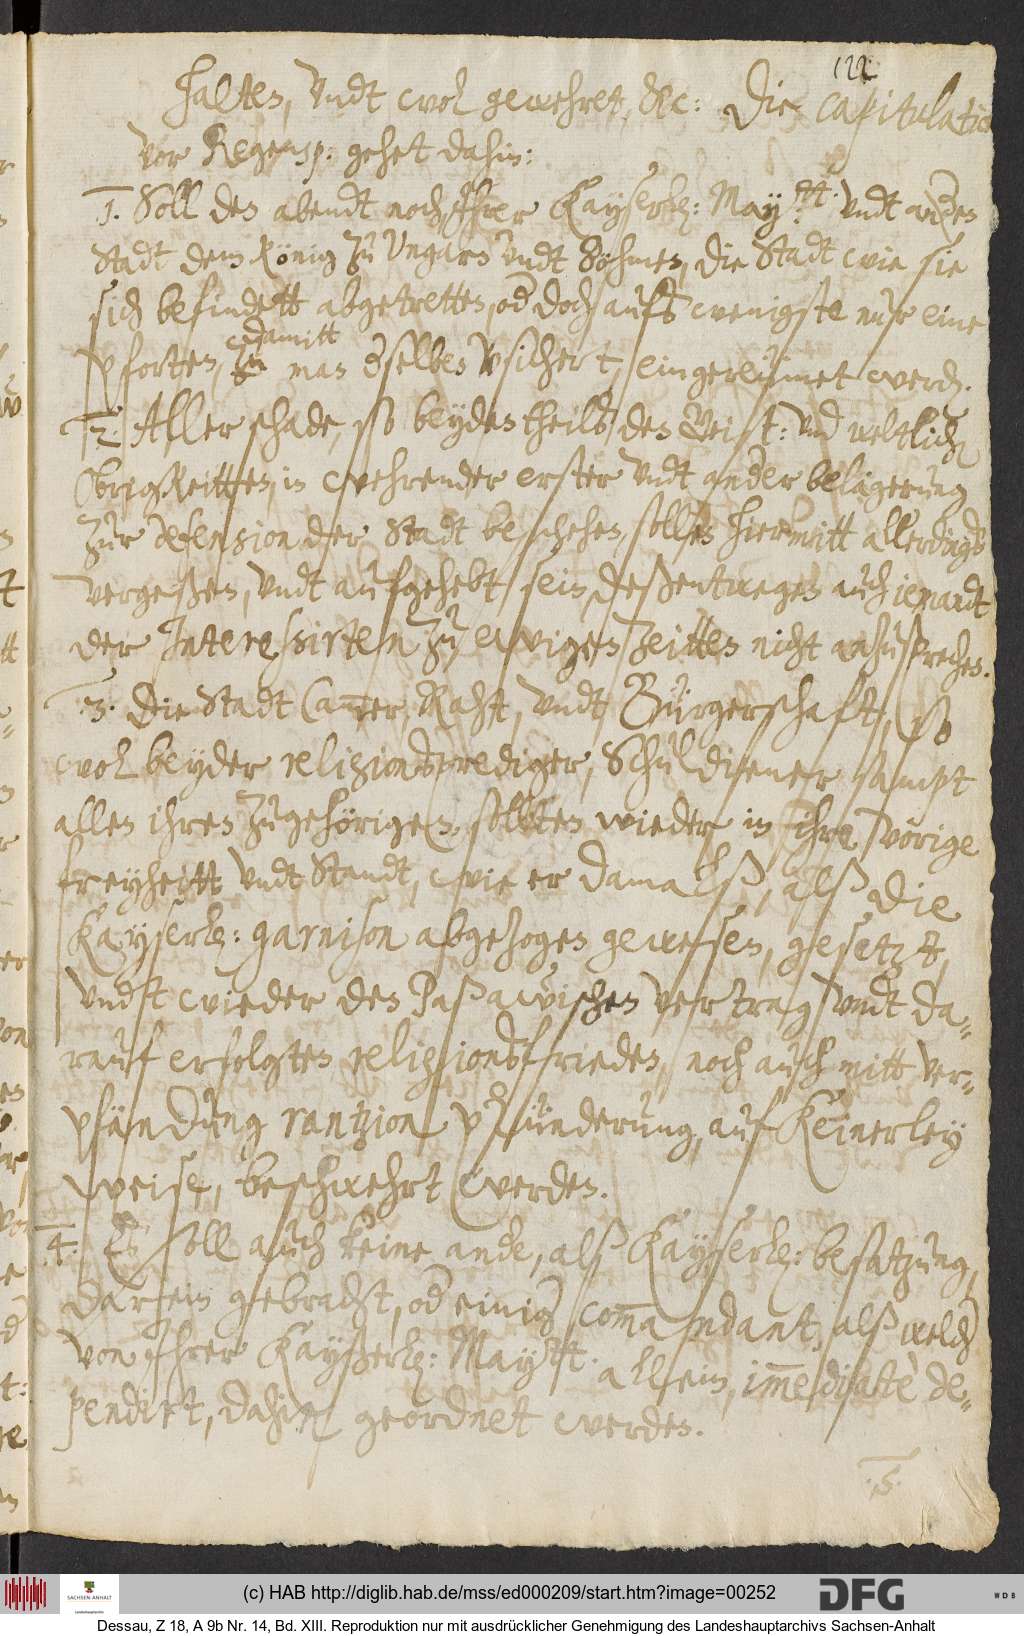 122
halten, Vndt wol gewehret, &c: Die capitulation
vor Regensp: gehet dahin:
1. Soll den abendt noch Ihrer Kayserl: May: tt. Vndt an dero
Stadt dem König Zu Ungarn Vndt Böhmen, die Stadt wie sie
sich befindett abgetretten, od doch aufs wenigste nur eine
damitt
pforten, man dselben vsichert, eingereümet werd.
2. Aller schade, so beyden theils den Geist: vnd weltlich
Obrigkeitten, in wehrender erster Vndt ander belägerung
Zur defension der Stadt beschehen, soll es hiermitt allerdings
vergeßen, Vndt aufgehebt sein, deßentwegen auch iemandt
der Interessirten Zu ewigen Zeitten nicht
3. Die Stadt Camer, Raht, Vndt Bürgerschafft, so
wol beyder religionsprediger, Schuldiener sampt
allen ihren Zugehörigen, sollten wieder in ihre vorige
freyheitt Vndt Standt, wie er damalß, alß die
Kayserl: garnison abgezogen gewesen, gesetzt,
Vndt wieder den Paßawischen vertrag Vndt da-
rauf erfolgten religionsfrieden, noch auch mitt ver-
pfändung rantzion plünderung, auf Keinerley
weise, beschwehrt werden.
4. Es soll auch keine ande, alß Kayserl: besatzung,
darein gebracht, od einig comendant, alß welch
von Ihrer Kayßerl: May: tt. allein, imediate de-
pendirt, dahin geordnet werden.
5.
(c) HAB http://diglib.hab.de/mss/ed000209/start.htm?image=00252
SACHSEN-ANHALT
Landeshauptarchiv
DFG
WDB
Dessau, Z 18, A 9b Nr. 14, Bd. XIII. Reproduktion nur mit ausdrücklicher Genehmigung des Landeshauptarchivs Sachsen-Anhalt